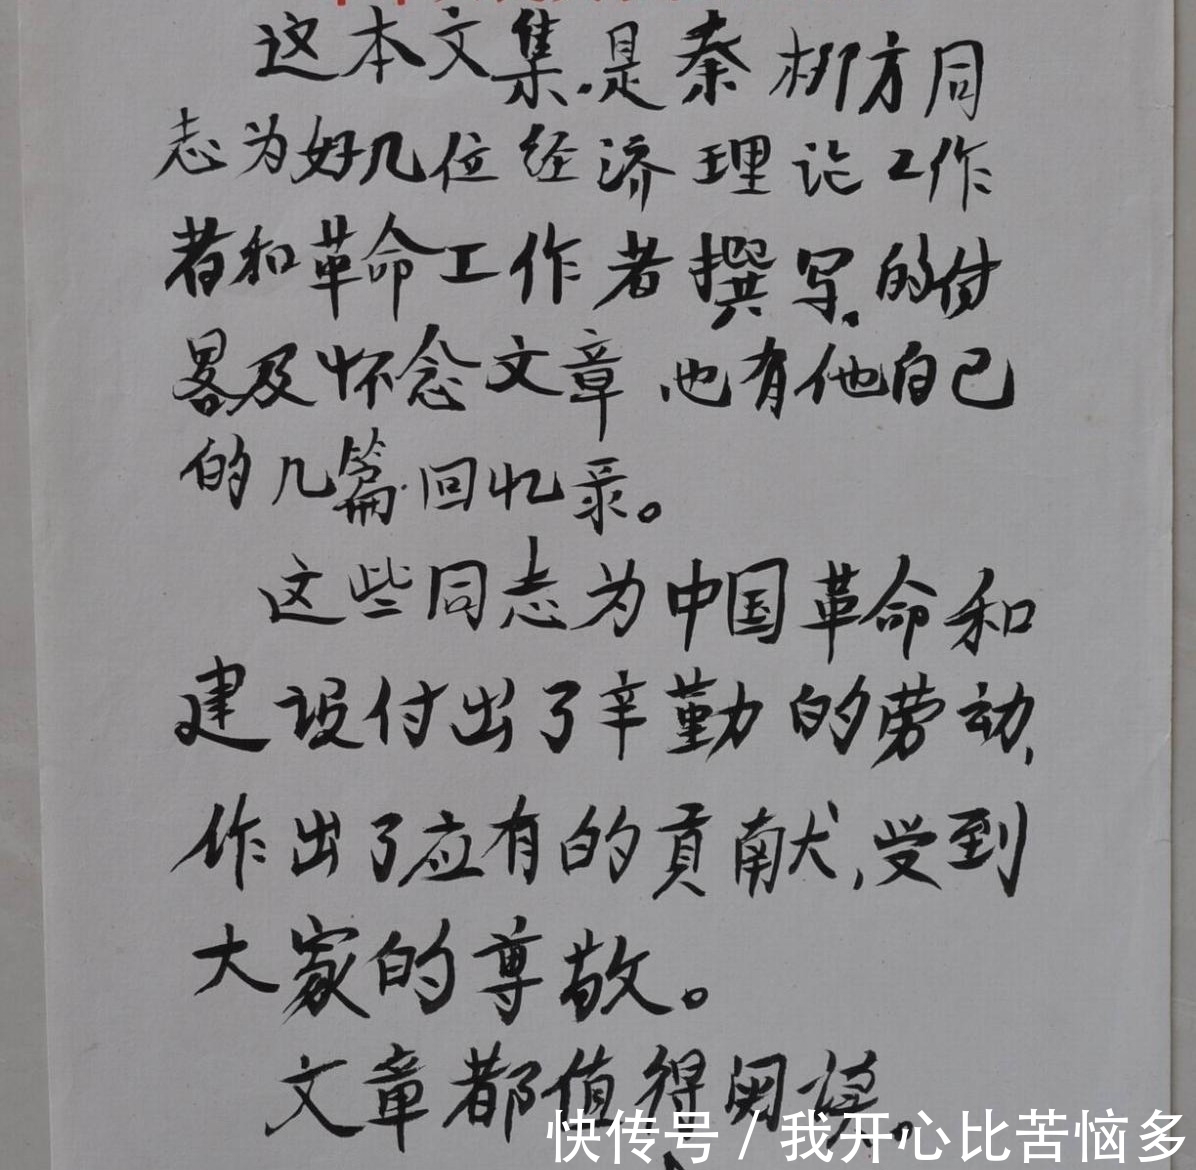 这本文集.是秦柳方同
志为好几位经济理论工作
者和革命工作者撰写.的传
畧及怀念文章 也有他自己
的几篇回忆录。
这些同志为中国革命和
建设付出了辛勤的劳动,
作出了应有的贡献,受到
大家的尊敬。
文章都值得阅读。
快传号 / 我开心比苦恼多